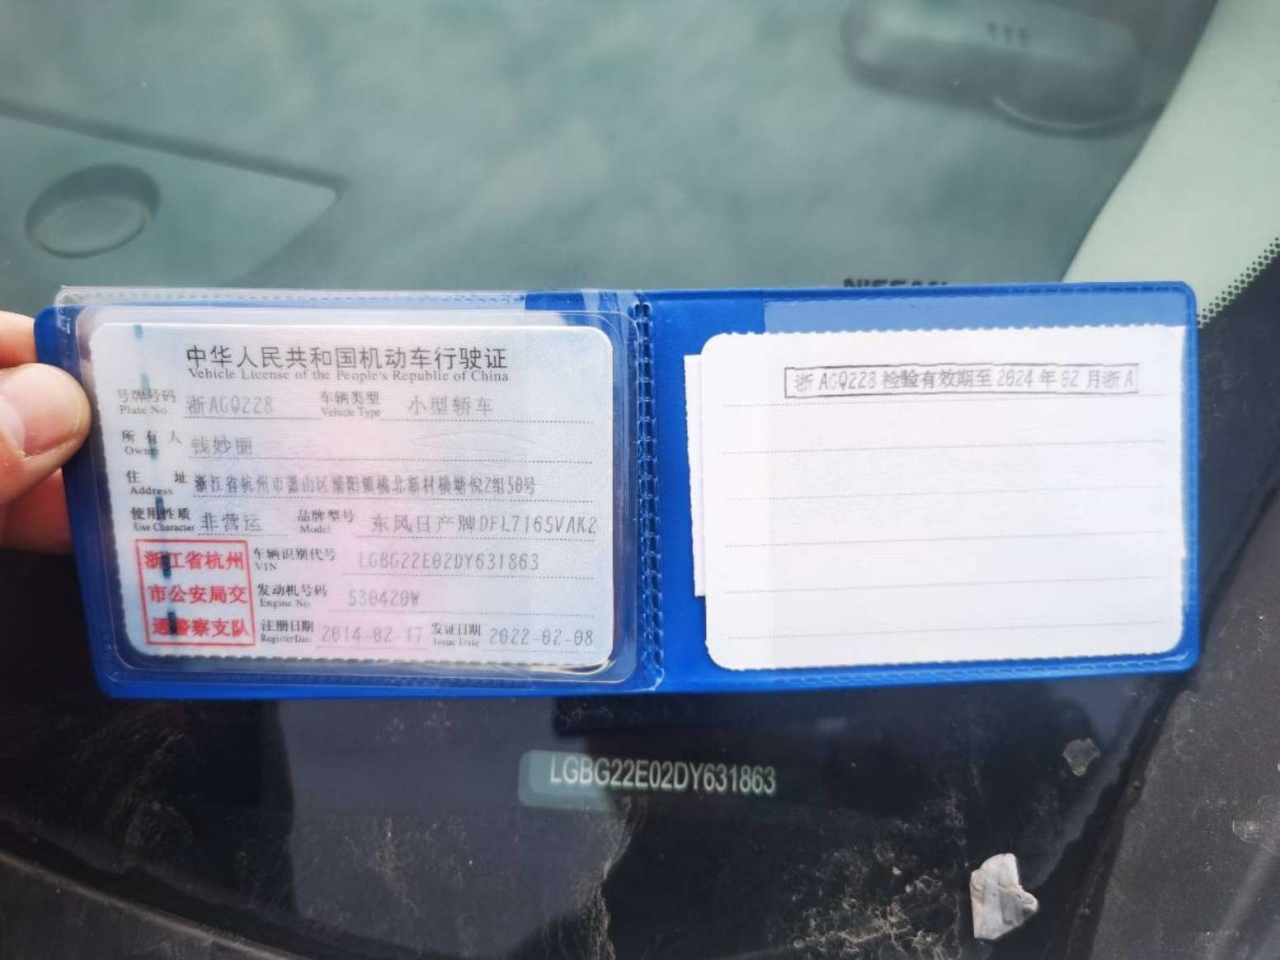 中华人民共和国机动车行驶证
Vehicle License of the People's Republic of China
号牌号码 浙AGQ228 车辆类型 小型轿车
Plate No. Vehicle Type
所有人 钱妙丽
Owner
住址 浙江省杭州市萧山区 2组50号
Address
使用性质 非营运 品牌型号 东风日产牌DFL7165VAK2
Use Character Model
浙江省杭州
市公安局交
通警察支队
车辆识别代号 LGBG22E02DY631863
VIN
发动机号码 530420W
Engine No.
注册日期 2014-02-17 发证日期 2022-02-08
Register Date Issue Date
浙AGQ228 检验有效期至 2024 年 02 月浙A
NISSAN
LGBG22E02DY631863